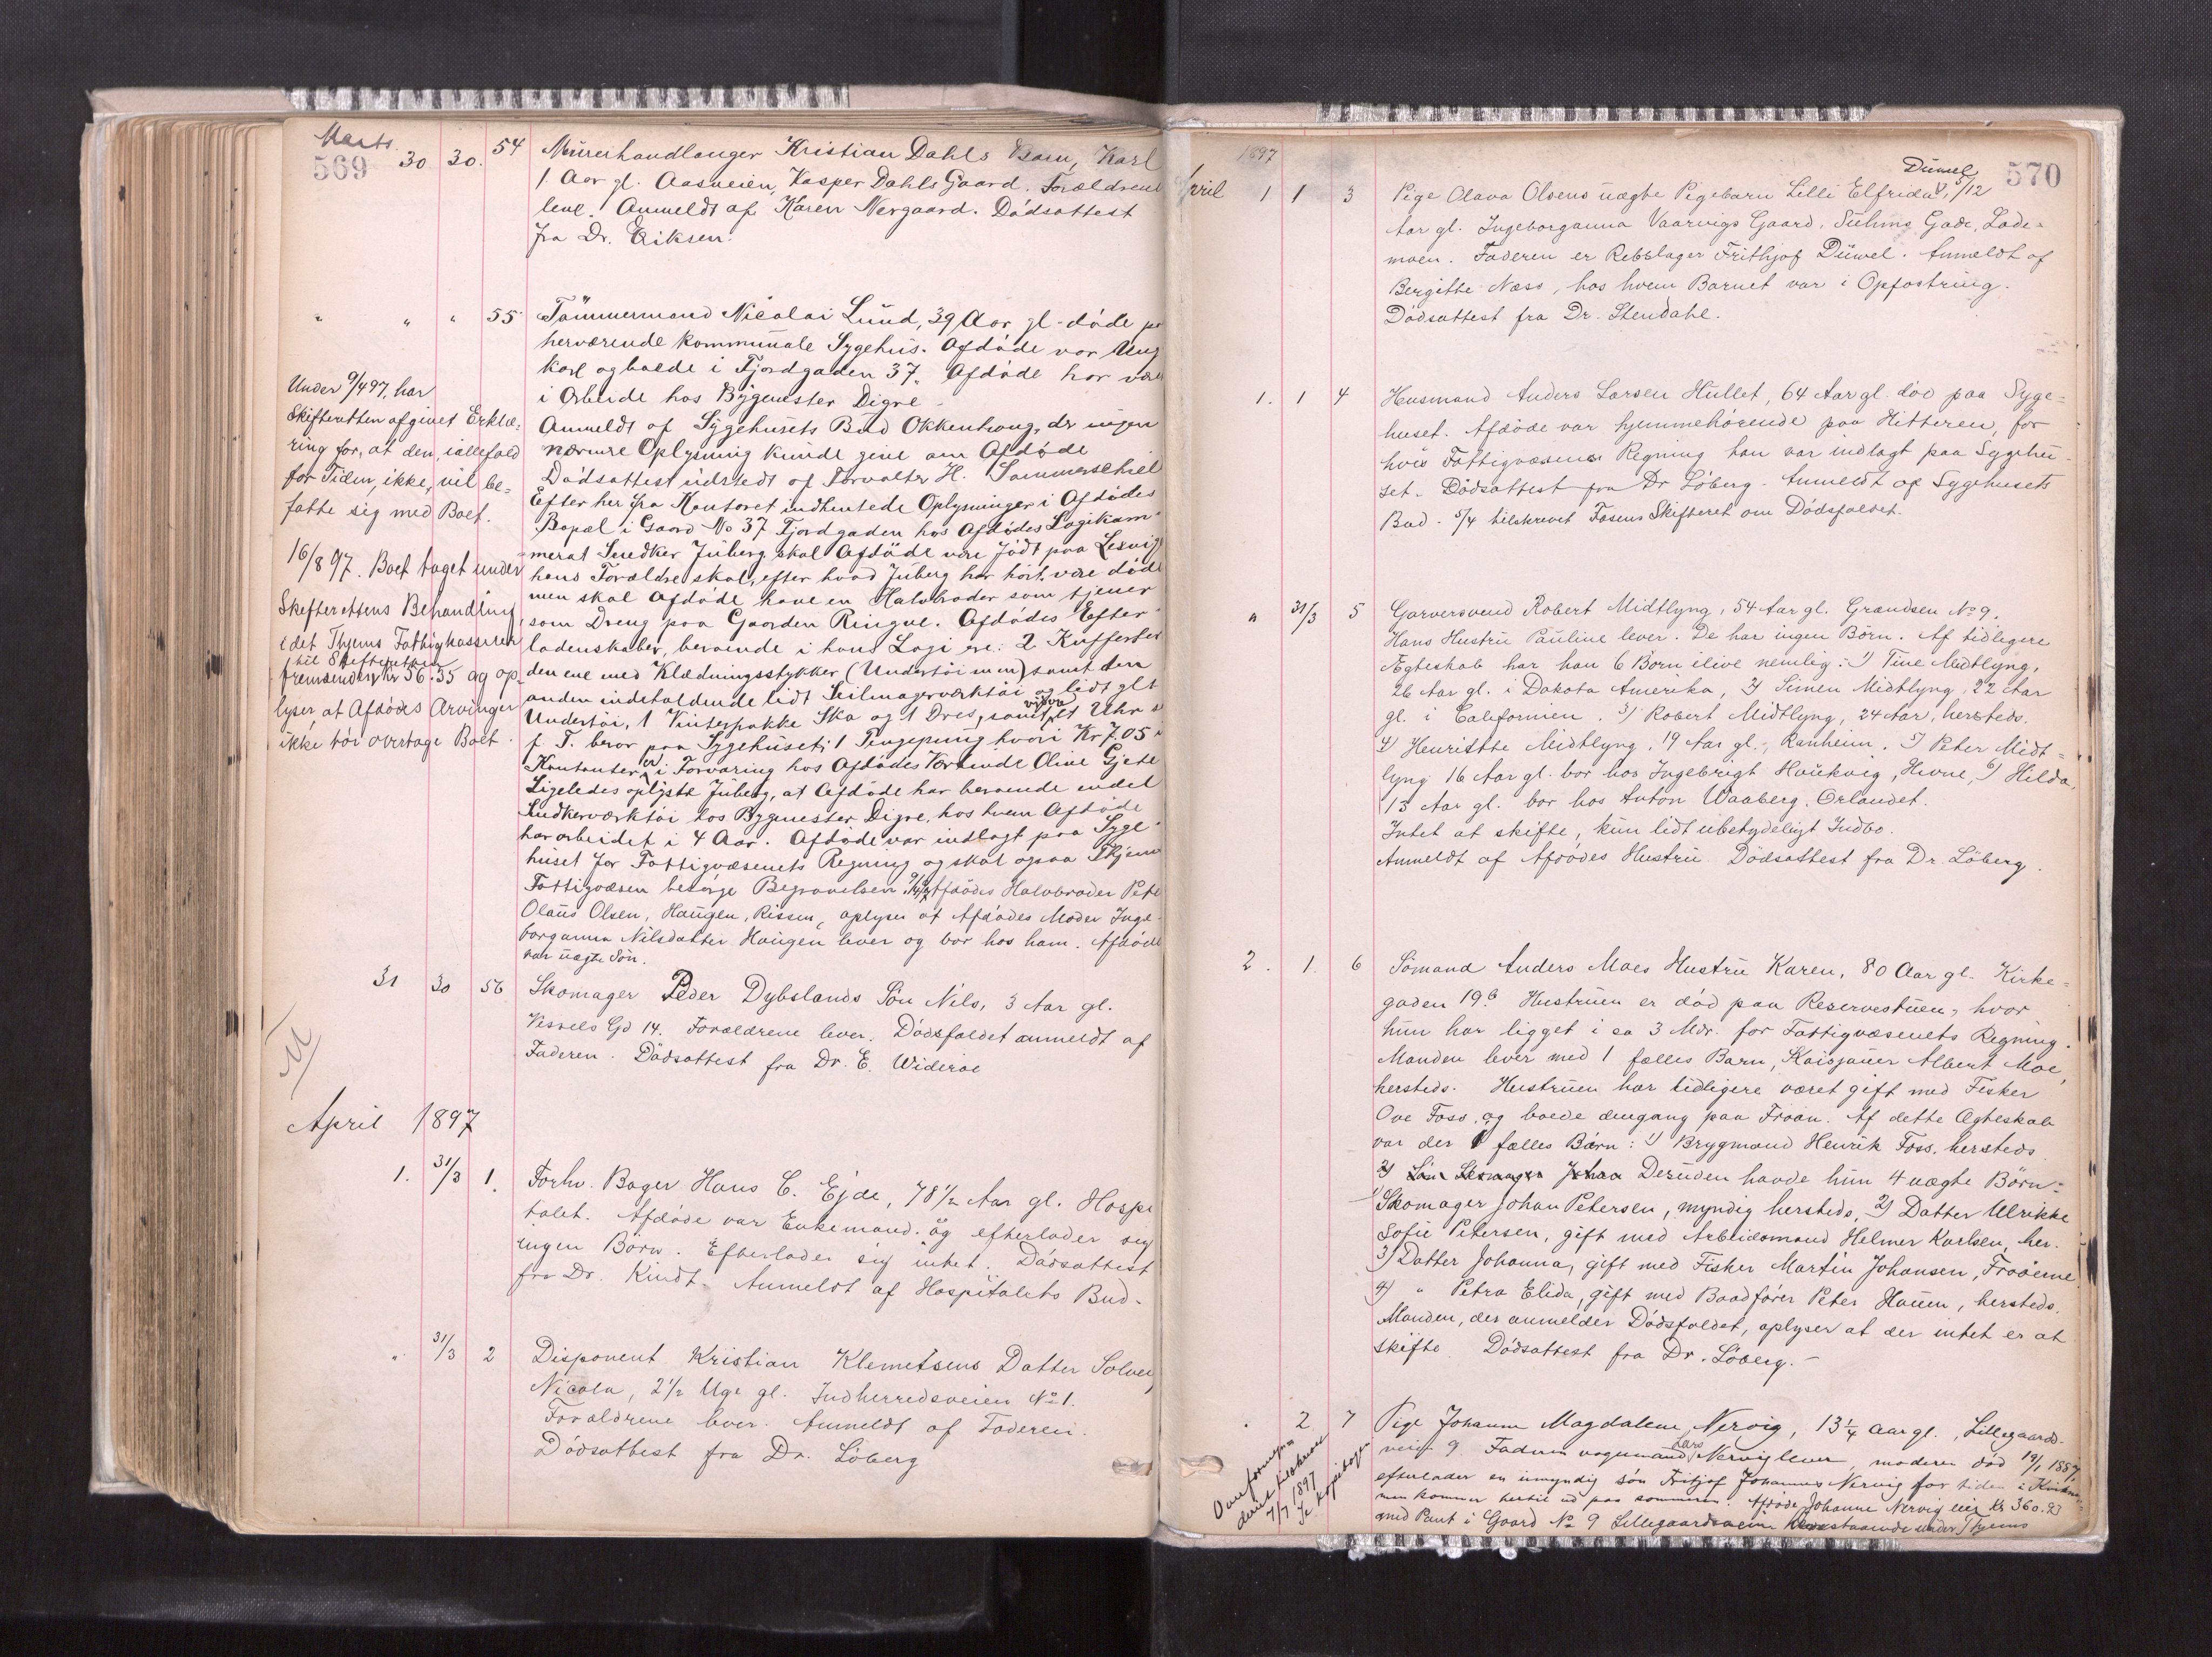 Marts
569 30 30. 54 Murerhandlanger Kristian Dahls Barn, Karl
1 Aar gl. Aasveien, Kasper Dahls Gaard. Forældrene
leve. Anmeldt af Karen Nergaard. Dødsattest
fra Dr. Eriksen.
" " " 55 Tømmermand Nicolai Lund, 39 Aar gl. døde pa
herværende kommunale Sygehus. Afdøde var Ung
karl og boede i Fjordgaden 37. Afdøde har være
i Arbeide hos Bygmester Digre.
Anmeldt af Sygehusets Bud Okkenhaug, der ingen
nærmere Oplysning kunde give om Afdøde
Dødsattest udstedt af Forvalter H. Sommerschiel
Efter her fra Kontoret indhentede Oplysninger i Afdødes
Bopæl i Gaard No 37 Fjordgaden hos Afdødes Logikam-
merat Snedker Juberg skal Afdøde være født paa Lexvig
hans Forældre skal, efter hvad Juberg har hørt, være døde
men skal Afdøde have en Halvbroder som tjener
som Dreng paa Gaarden Ringve. Afdødes Efter-
ladenskaber, beroende i hans Logi ere: 2 Kufferter
den ene med Klædningsstykker (Undertøi m m) samt den
anden indeholdende lidt Seilmagerværktøi og lidt glt
Undertøi, 1 Vinterfrakke Sko og 1 Dres, samt et Uhr s
f. T. beror paa Sygehuset; 1 Pengepung hvori Kr 7.05 i
Kontanter er i Forvaring hos Afdødes Værtinde Oline Gjete
Ligeledes oplyste Juberg, at Afdøde har beroende endel
Snedkerværktøi hos Bygmester Digre, hos hvem Afdøde
har arbeidet i 4 Aar. Afdøde var indlagt paa Syge-
huset for Fattigvæsenets Regning og skal ogsaa Thjems
Fattigvæsen besørge Begravelsen. 9/4 97 Afdødes Halvbroder Pete
Olaus Olsen, Haugen, Rissen, oplyser at Afdødes Moder Inge-
borganna Nilsdatter Haugen lever og bor hos ham. Afdøde
var uægte Søn.
Under 9/4 97, har
Skifteretten afgivet Erklæ-
ring for, at den, iallefald
for Tiden, ikke, vil be-
fatte sig med Boet.
16/8 97. Boet taget under
Skifterettens Behandling
idet Thjems Fattigkasserer
til Skifteretten
fremsender Kr 56.35 og op-
lyser, at Afdødes Arvinger
ikke tør overtage Boet.
31 30 56 Skomager Peder Dybslands Søn Nils, 3 Aar gl.
Vessels Gd 14. Forældrene lever. Dødsfaldet anmeldt af
Faderen. Dødsattest fra Dr. E. Widerøe
April 1897
1. 31/3 1. Forhv. Bager Hans C. Ejde, 78 1/2 Aar gl. Hospi
talet. Afdøde var Enkemand og efterlader sig
ingen Børn. Efterlader sig intet. Dødsattest
fra Dr. Kindt. Anmeldt af Hospitalets Bud.
" 31/3 2 Disponent Kristian Klemetsens Datter Solvei
Nicola, 2 1/2 Uge gl. Indherredsveien No 1.
Forældrene lever. Anmeldt af Faderen.
Dødsattest fra Dr. Løberg
1897
570
Düwel
April 1 1 3 Pige Olava Olsens uægte Pigebarn Lilli Elfrida, 5/12
Aar gl. Ingeborganna Vaarvigs Gaard, Suhms Gade, Lade-
moen. Faderen er Rebslager Frithjof Düwel. Anmeldt af
Bergitte Næss, hos hvem Barnet var i Opfostring.
Dødsattest fra Dr. Stendahl.
1. 1 4 Husmand Anders Larsen Hullet, 64 Aar gl. død paa Syge-
huset. Afdøde var hjemmehørende paa Hitteren, for
hvis Fattigvæsens Regning han var indlagt paa Sygehu-
set. Dødsattest fra Dr Løberg. Anmeldt af Sygehusets
Bud. 5/4 tilskrevet Fosens Skifteret om Dødsfaldet.
" 31/3 5 Garversvend Robert Midtlyng, 54 Aar gl. Grændsen No 9.
Hans Hustru Pauline lever. De har ingen Børn. Af tidligere
Ægteskab har han 6 Børn ilive nemlig: 1) Tine Midtlyng,
26 Aar gl. i Dakota Amerika, 2) Simen Midtlyng, 22 Aar
gl. i Californien. 3) Robert Midtlyng, 24 Aar, hersteds.
4) Henriette Midtlyng, 19 Aar gl., Ranheim. 5) Peter Midt-
lyng 16 Aar gl. bor hos Ingebrigt Haukvig, Hevne, 6) Hilda,
13 Aar gl. bor hos Anton Waaberg, Ørlandet.
Intet at skifte, kun lidt ubetydeligt Indbo.
Anmeldt af Afdødes Hustru. Dødsattest fra Dr. Løberg.
2. 1. 6 Sømand Anders Moes Hustru Karen, 80 Aar gl. Kirke-
gaden 19b Hustruen er død paa Reservestuen, hvor
hun har ligget i ca 3 Mdr. for Fattigvæsenets Regning.
Manden lever med 1 fælles Barn, Kaisjauer Albert Moe,
hersteds. Hustruen har tidligere været gift med Fisker
Ove Foss, og boede dengang paa Froan. Af dette Ægteskab
var der 1 fælles Børn: 1) Brygmand Henrik Foss, hersteds
2) Søn Skomager Johan Desuden havde hun 4 uægte Børn:
1) Skomager Johan Petersen, myndig hersteds, 2) Datter Ulrikke
Sofie Petersen, gift med Arbeidsmand Helmer Karlsen, her.
3) Datter Johanna, gift med Fisker Martin Johansen, Froøerne
4) " Petra Elida, gift med Baadfører Peter Hauen, hersteds.
Manden, der anmelder Dødsfaldet, oplyser at der intet er at
skifte. Dødsattest fra Dr. Løberg.
. 2 7 Pige Johanne Magdalene Nervig, 13 1/4 Aar gl., Lillegaards-
veien 9. Faderen vognmand Lars Nervig lever, moderen død 19/1 1887,
efterlader en umyndig søn Fritjof Johannes Nervig for tiden i
men kommer hertil ud paa sommeren. Afdøde Johanne Nervig eier Kr 360.23
med Pant i Gaard No 9 Lillegaardsveien staaende under Thjems
Overformyn-
deriet tilskrevet
7/7 1897
Se Kopibogen